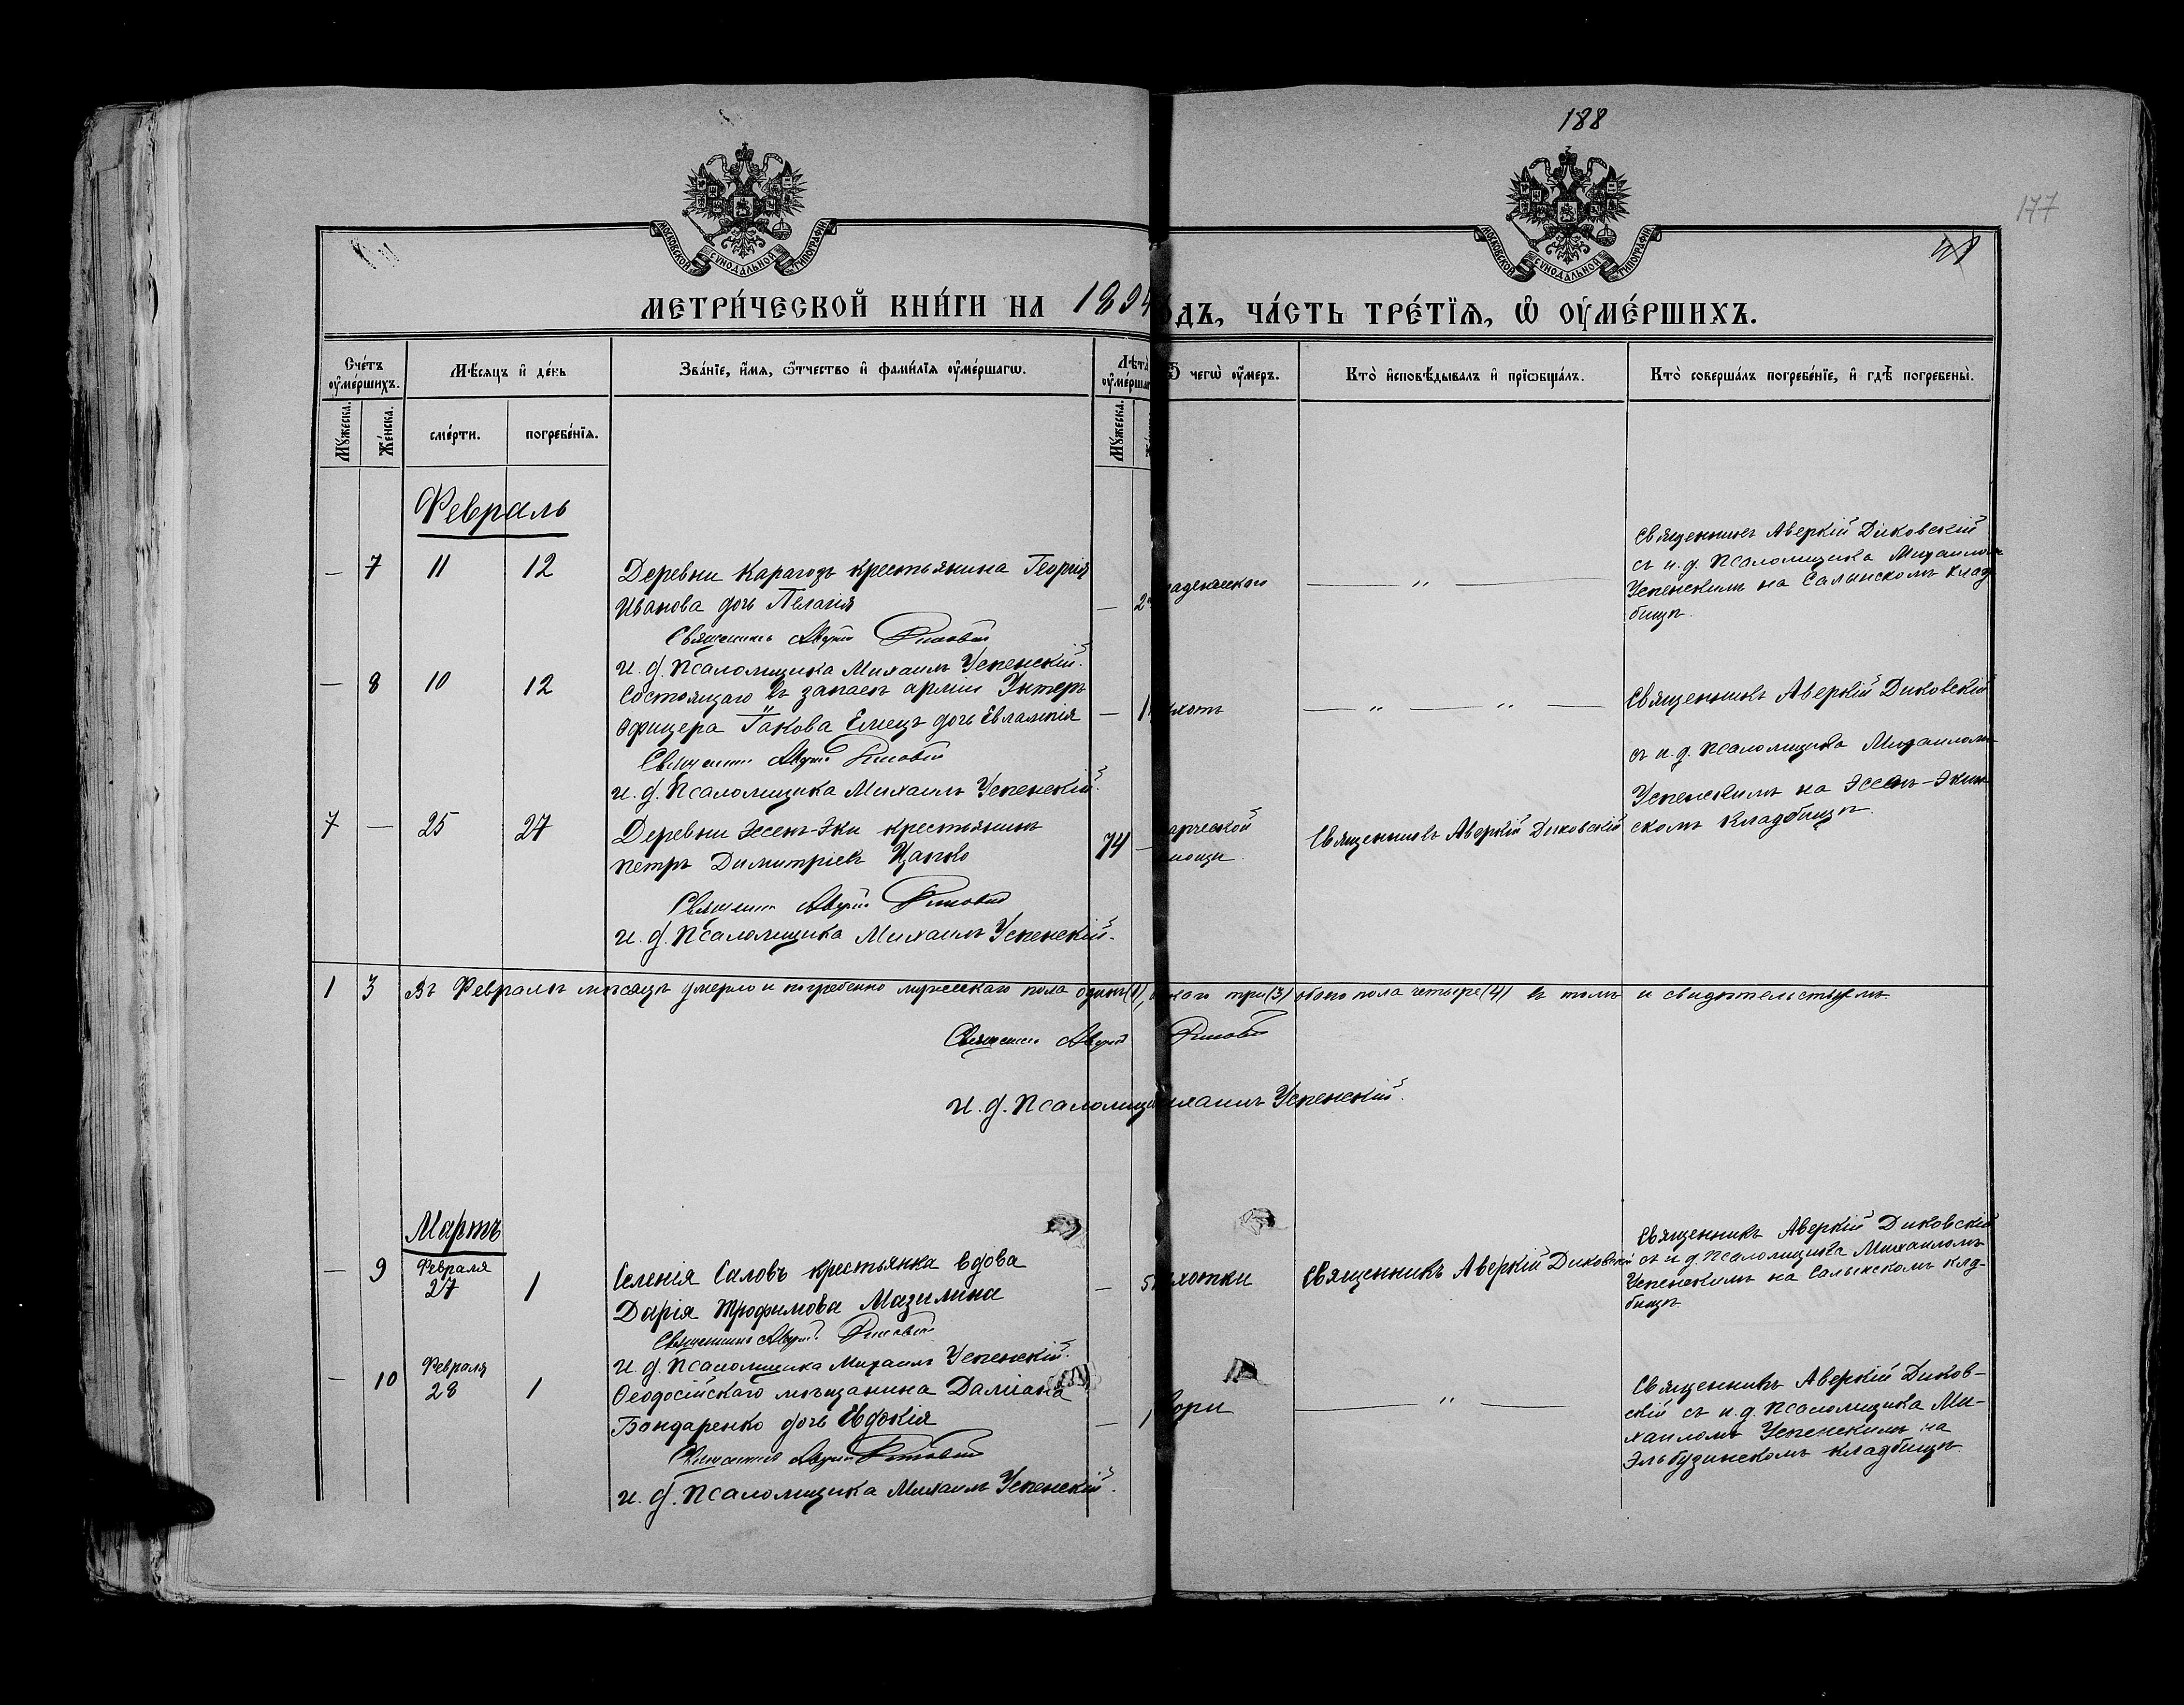 188
177
МОСКОВСКОЙ СѴНОДАЛЬНОЙ ТИПОГРАФІИ
МОСКОВСКОЙ СѴНОДАЛЬНОЙ ТИПОГРАФІИ
МЕТРИ́ЧЕСКОЙ КНИ́ГИ НА 1894
ОДЪ, ЧА́СТЬ ТРЕ́ТЇѦ, Ѽ ОУ҆МЕ́РШИХЪ.
Сче́тъ оу҆ме́ршихъ.
Мꙋ́жеска.
Же́нска.
Мѣ́сяцъ и҆ де́нь
сме́рти.
погребе́нїѧ.
Зва́нїе, и҆́мѧ, ѻ҆́тчество и҆ фами́лїѧ оу҆ме́ршагѡ.
Лѣта
оу҆ме́ршаг
Мꙋ́жеска.
Ѿ чегѡ̀ оу҆́меръ.
Кто̀ и҆сповѣ́дывалъ и҆ прїѡбща́лъ.
Кто̀ соверша́лъ погребе́нїе, и҆ гдѣ̀ погребены̀.
Февраль
— 7 11 12 Деревни Карагозъ крестьянина Георгія
Иванова дочь Пелагія
Священникъ Аверкій Диковскій
и. д. Псаломщика Михаилъ Успенскій.
— 2
аденческого
— „ —
Священникъ Аверкій Диковскій
съ и. д. Псаломщика Михаиломъ
Успенскимъ на Салынскомъ клад
бищѣ.
— 8 10 12 Состоящаго въ запасѣ арміи Унтеръ
Офицера Іакова Емецъ дочь Евлампія
Священникъ Аверкій Диковскій
и. д. Псаломщика Михаилъ Успенскій.
— 1
— „ — „ —
Священникъ Аверкій Диковскій
съ и. д. Псаломщика Михаиломъ
Успенскимъ на Эссенъ-Экин
скомъ кладбищѣ.
7 — 25 27 Деревни Эссенъ-Эки крестьянинъ
Петръ Димитріевъ Цапко
Священникъ Аверкій Диковскій
и. д. Псаломщика Михаилъ Успенскій.
74 —
арческой
мощи.
Священникъ Аверкій Диковскій
1 3 Въ Февралѣ мѣсяцѣ умерло и погребенно мужескаго пола одинъ (1), скаго три (3) обоего пола четыре (4) въ томъ и свидѣтельствуемъ
Священникъ Аверкій Диковскій
и. д. Псаломщи ихаилъ Успенскій.
Мартъ
— 9 Февраля 27 1 Селенія Саловъ крестьянка вдова
Дарія Трофимова Мазилина
Священникъ Аверкій Диковскій
и. д. Псаломщика Михаилъ Успенскій.
— 5
хотки
Священникъ Аверкій Диковскій
Священникъ Аверкій Диковскій
съ и. д. Псаломщика Михаиломъ
Успенскимъ на Салынскомъ клд-
бищѣ
— 10 Февраля 28 1 Ѳеодосійскаго мѣщанина Даміана
Бондаренко дочь Евдокія
Священникъ Аверкій Диковскій
и. д. Псаломщика Михаилъ Успенскій.
— 1
ори
— „ —
Священникъ Аверкій Диков-
скій съ и. д. Псаломщика Ми-
хаиломъ Успенскимъ на
Эльбузинскомъ кладбищѣ